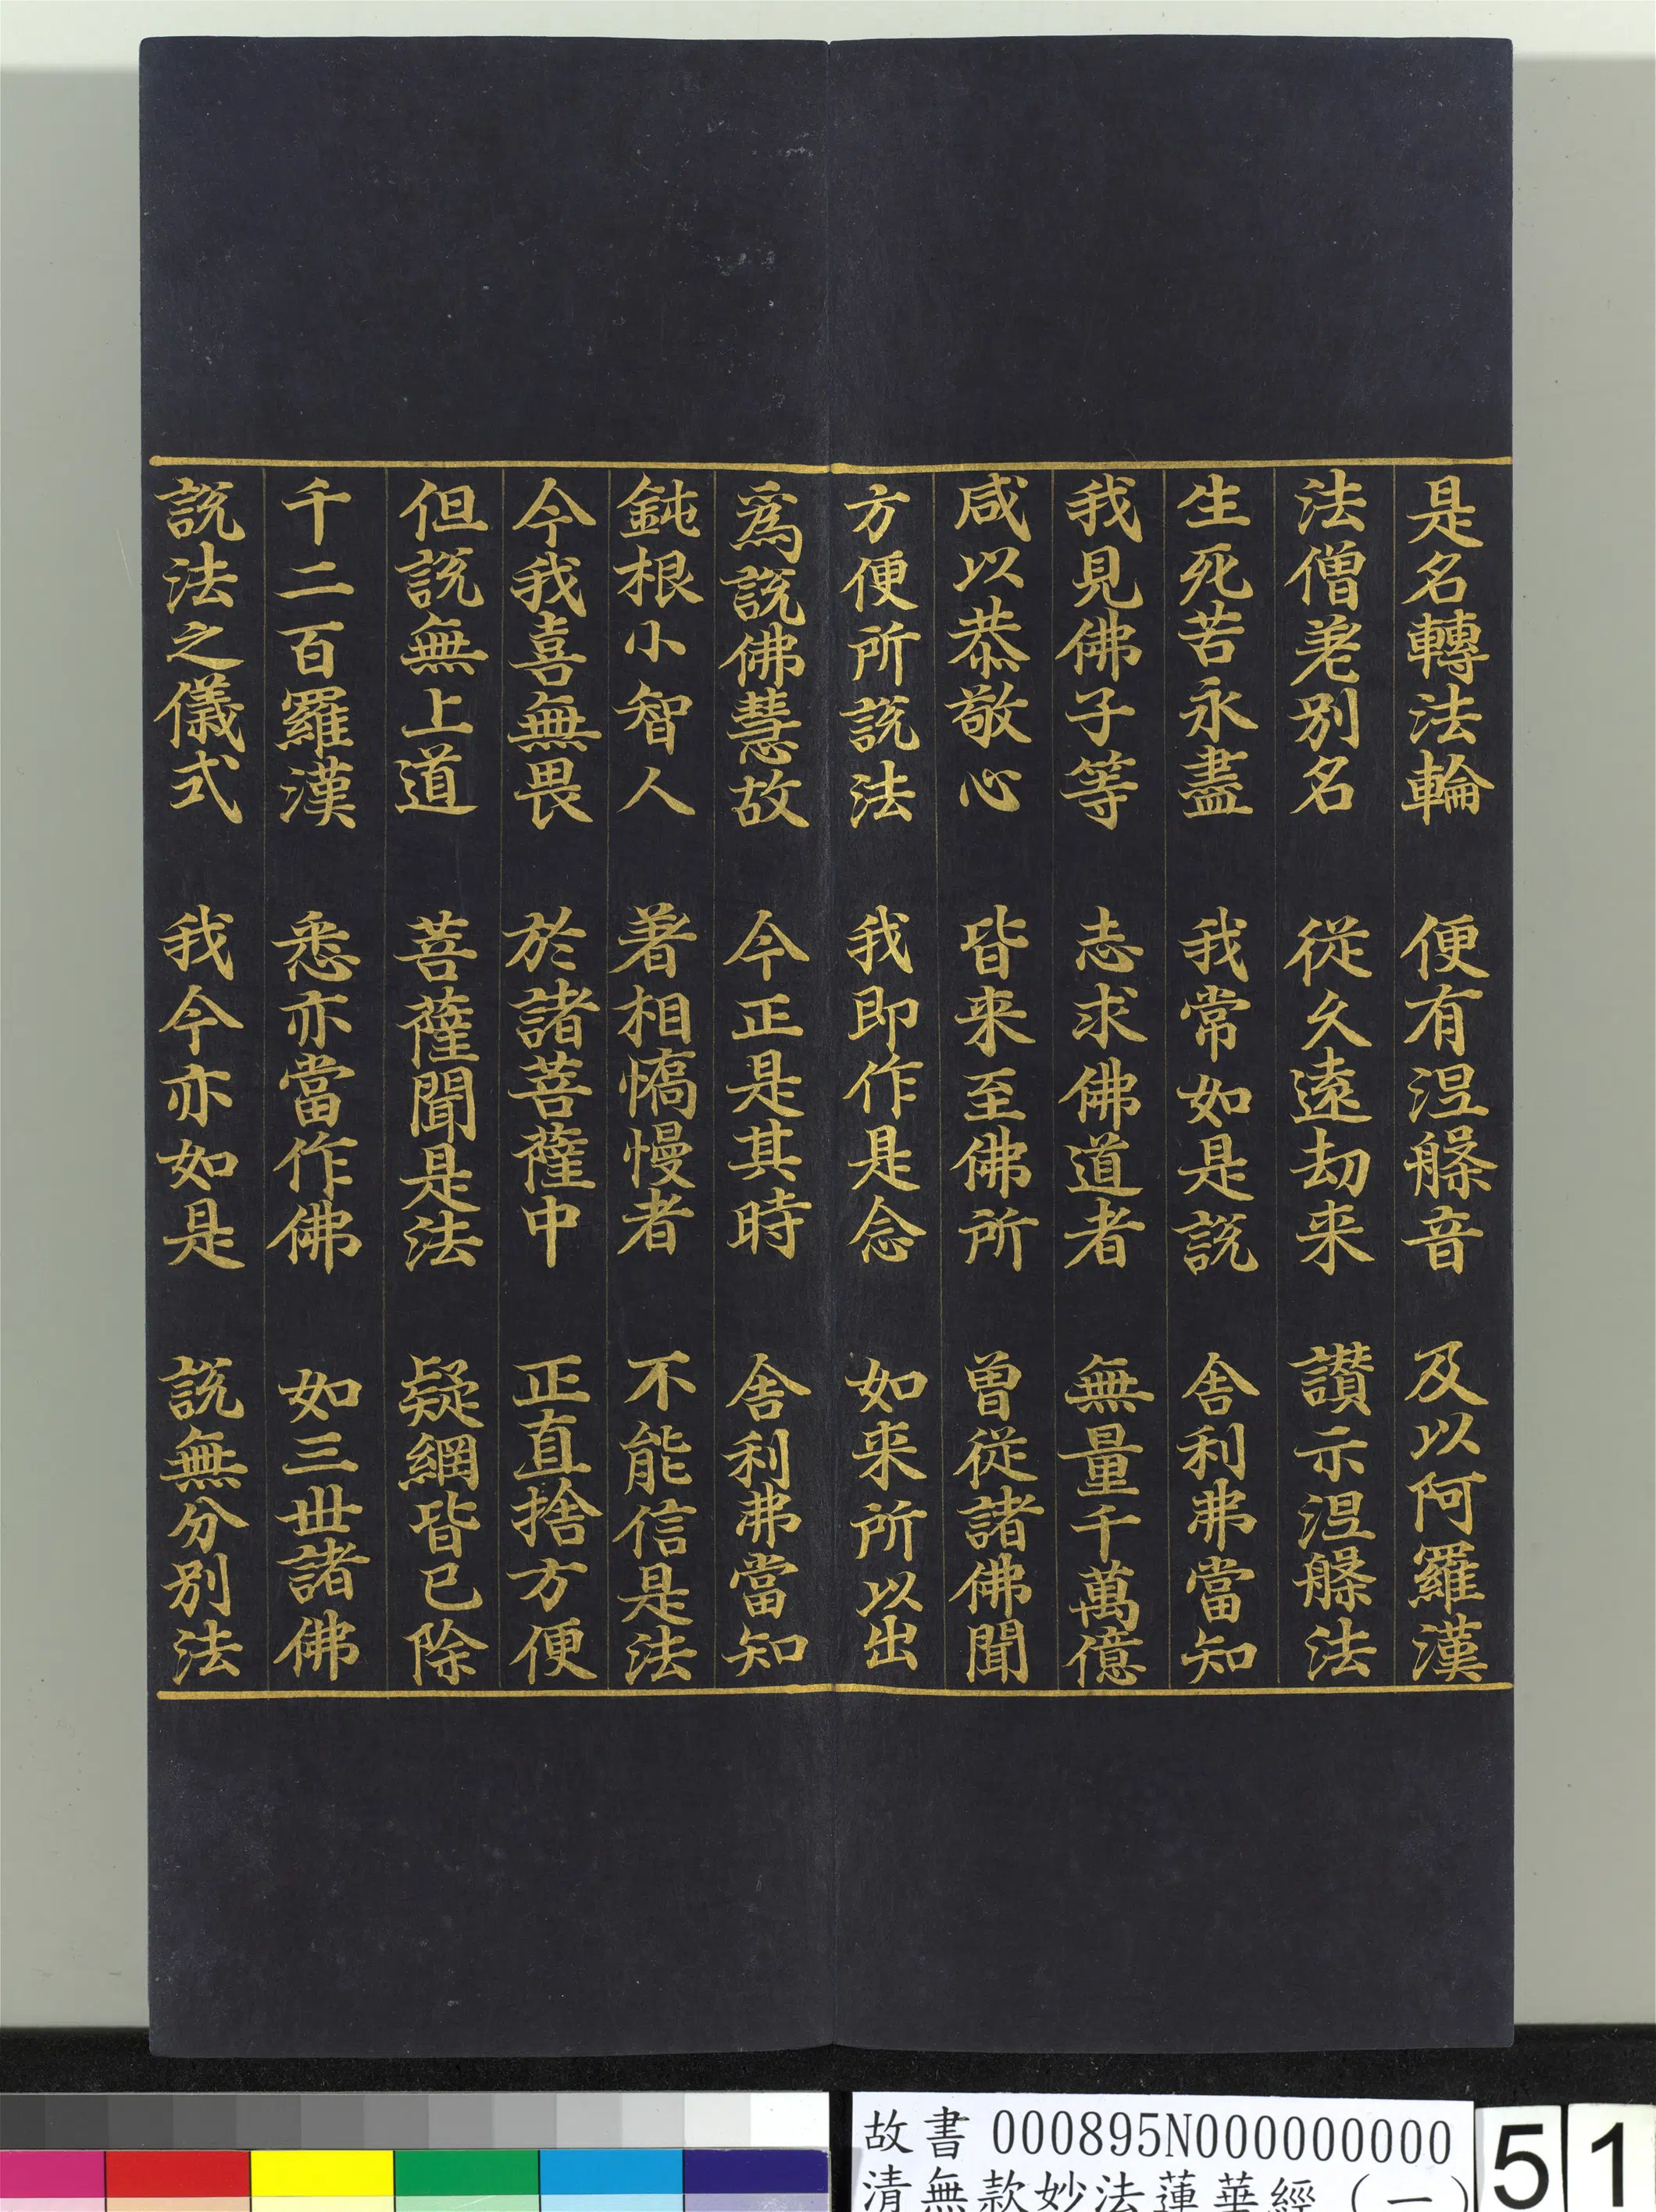 是名轉法輪　便有涅槃音　及以阿羅漢
法僧差別名　從久遠劫来　讃示涅槃法
生死苦永盡　我常如是説　舍利弗當知
我見佛子等　志求佛道者　無量千萬億
咸以恭敬心　皆来至佛所　曽從諸佛聞
方便所説法　我即作是念　如来所以出
為説佛慧故　今正是其時　舍利弗當知
鈍根小智人　著相憍慢者　不能信是法
今我喜無畏　於諸菩薩中　正直捨方便
但説無上道　菩薩聞是法　疑網皆已除
千二百羅漢　悉亦當作佛　如三世諸佛
説法之儀式　我今亦如是　説無分別法
故書 000895N000000000
清無款妙法蓮華經（一）
51